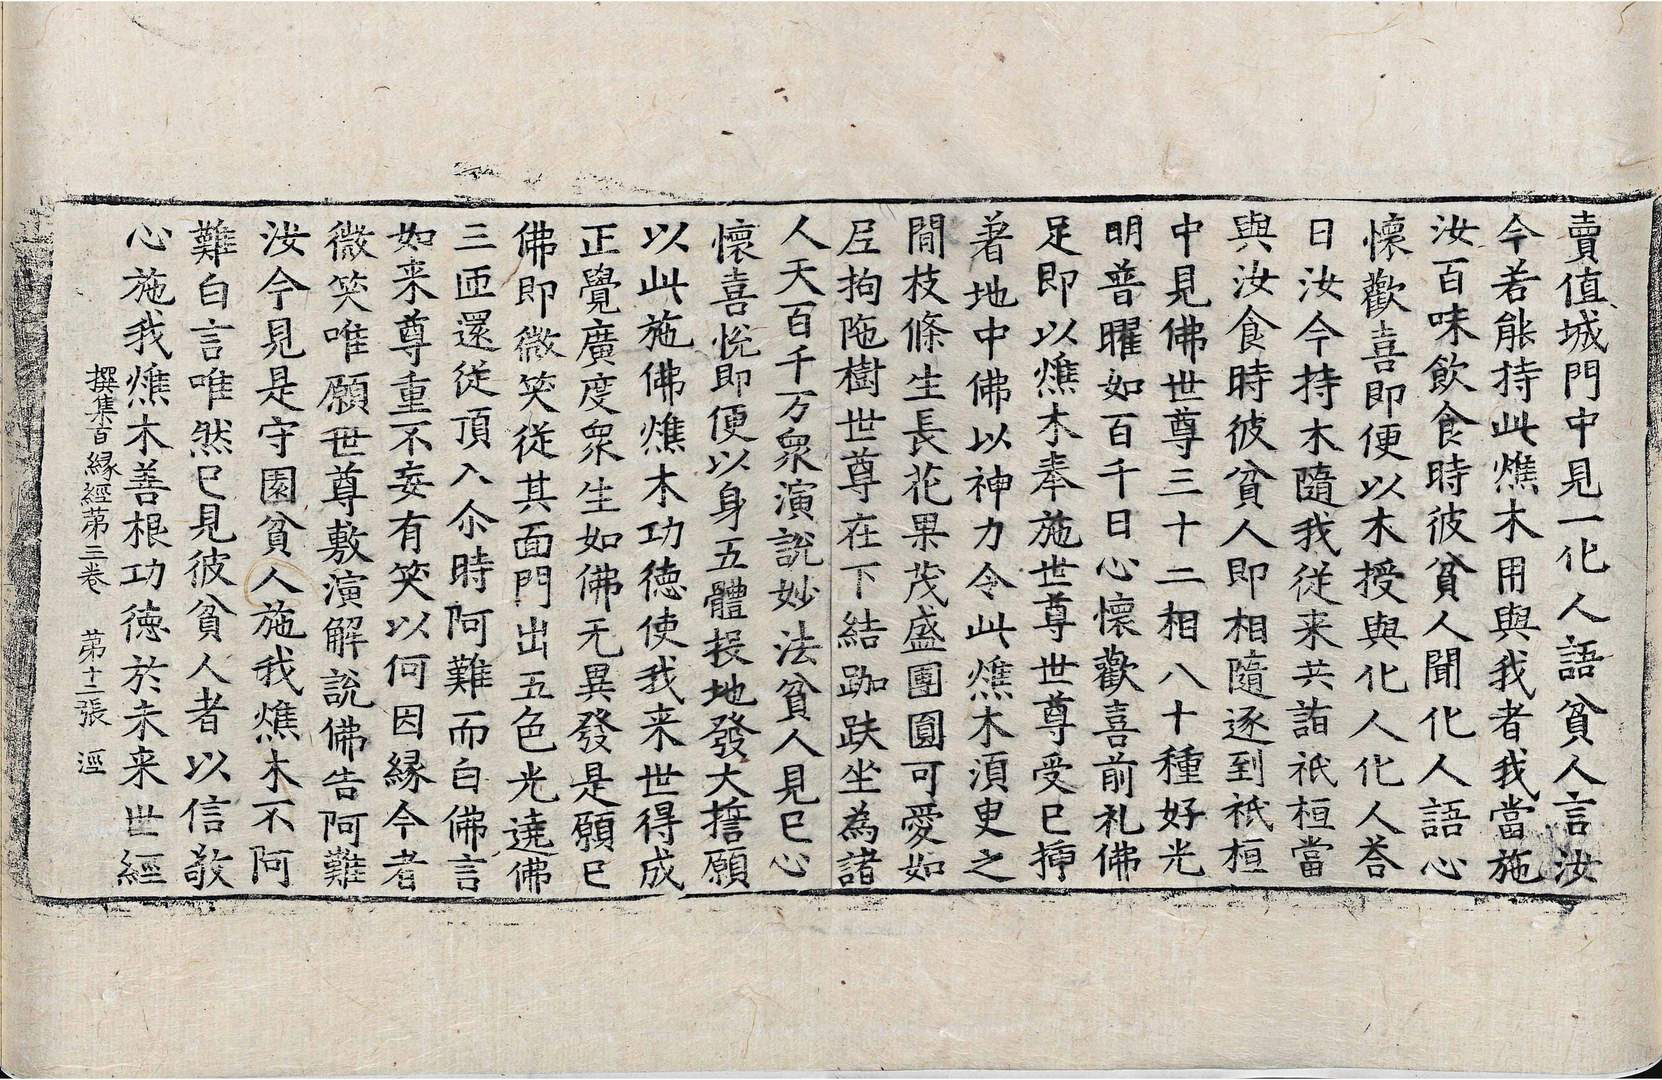 賣值城門中見一化人語貧人言汝
今若能持此燋木用與我者我當施
汝百味飲食時彼貧人聞化人語心
懷歡喜即便以木授與化人化人荅
曰汝今持木隨我従来共詣祇桓當
與汝食時彼貧人即相隨逐到祇桓
中見佛世尊三十二相八十種好光
明普曜如百千日心懷歡喜前礼佛
足即以燋木奉施世尊世尊受已揷
著地中佛以神力令此燋木湏㬰之
間枝條生長花果茂盛團圓可愛如
尼拘陁樹世尊在下結跏趺坐為諸
人天百千万衆演說妙法貧人見已心
懷喜悅即便以身五體投地發大擔願
以此施佛燋木功徳使我来世得成
正覺廣度衆生如佛无異發是願已
佛即微笑従其面門出五色光遶佛
三匝還従頂入尒時阿難而白佛言
如来尊重不妄有笑以何因縁今者
微笑唯願世尊敷演解說佛告阿難
汝今見是守園貧人施我燋木不阿
難白言唯然已見彼貧人者以信敬
心施我燋木善根功徳於未来世經
撰集百縁經苐三卷 苐十二張 𢀖